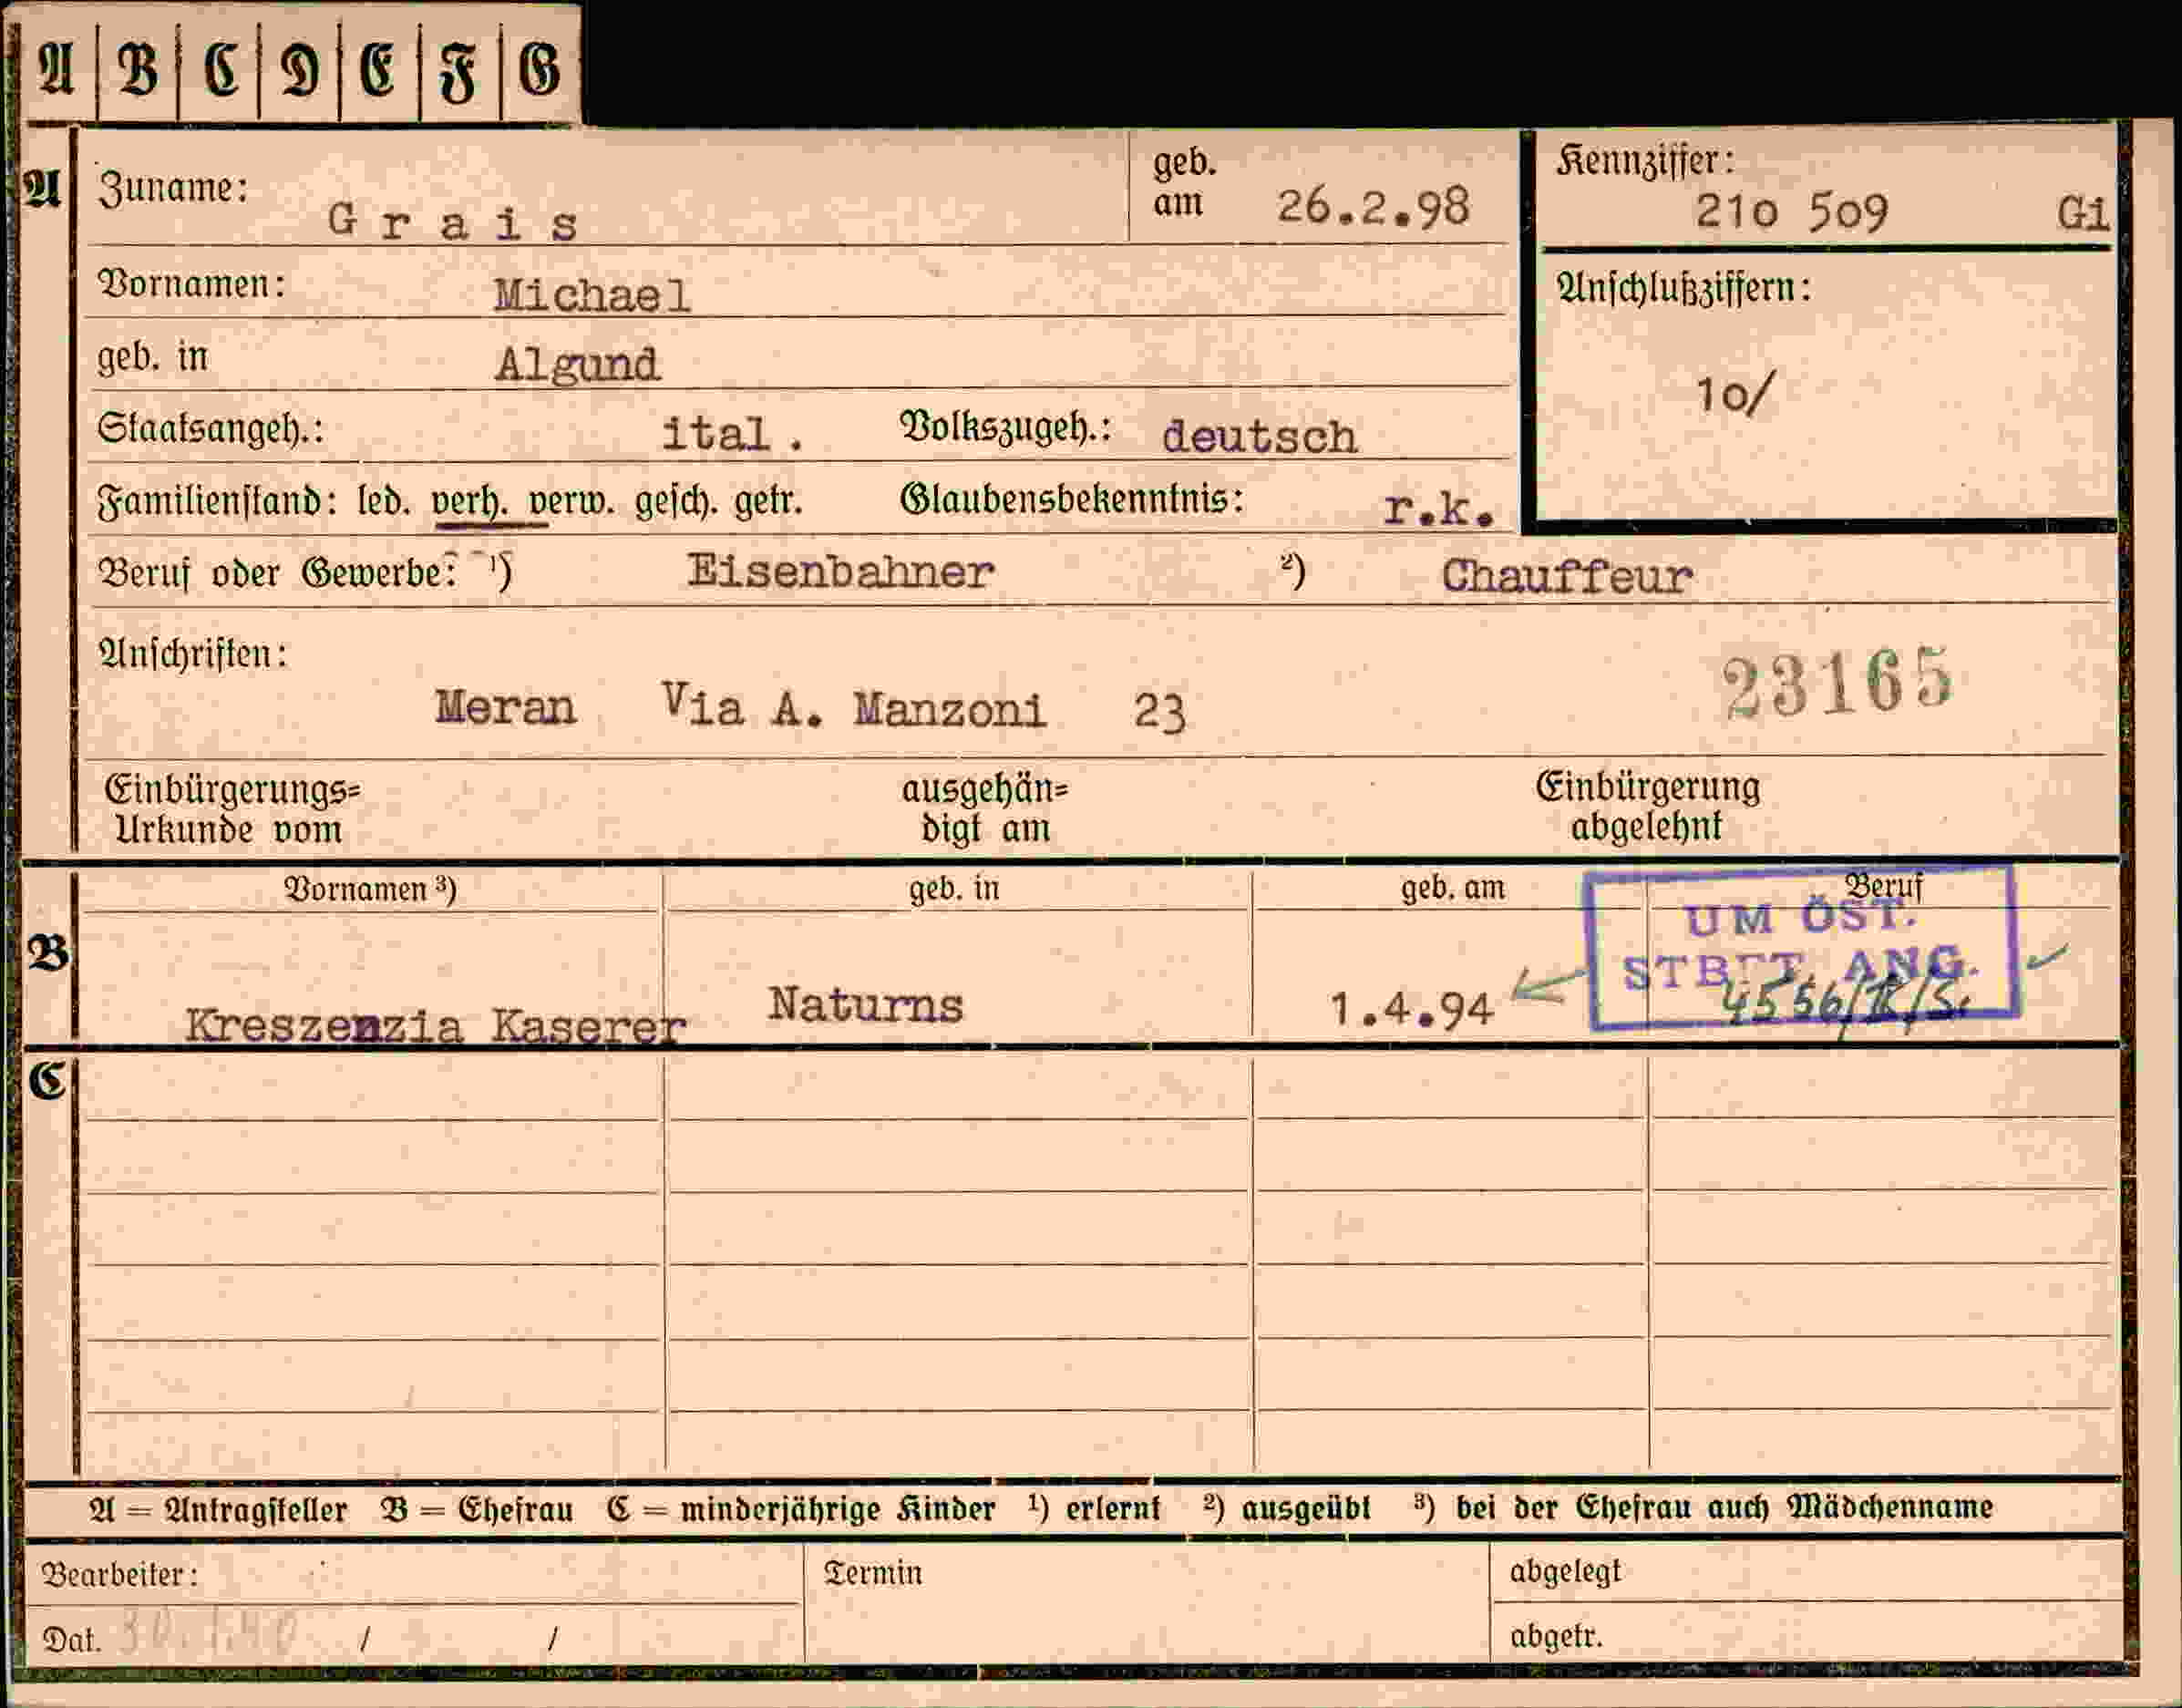 A B C D E F G
A Zuname: Grais geb. am 26.2.98 Kennziffer: 21o 5o9 Gi
Vornamen: Michael Anschlußziffern:
geb. in Algund 1o/
Staatsangeh.: ital. Volkszugeh.: deutsch
Familienstand: led. verh. verw. gesch. getr. Glaubensbekenntnis: r.k.
Beruf oder Gewerbe: 1) Eisenbahner 2) Chauffeur
Anschriften: 23165
Meran Via A. Manzoni 23
Einbürgerungs= ausgehän= Einbürgerung
Urkunde vom digt am abgelehnt
B Vornamen 3) geb. in geb. am Beruf
UM ÖST.
STBTT. ANG.
Kreszenzia Kaserer Naturns 1.4.94 4556/R/S.
C
A = Antragsteller B = Ehefrau C = minderjährige Kinder 1) erlernt 2) ausgeübt 3) bei der Ehefrau auch Mädchenname
Bearbeiter: Termin abgelegt
Dat. 30.1.40 / / abgetr.